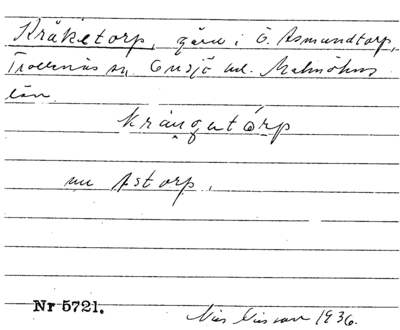 Kråketorp, gård i Ö. Asmundtorp,
Trollenäs sn, Onsjö hd. Malmöhus
län.
krångatórp
nu Åstorp.
Nr 5721.
Nils Nilsson 1936.